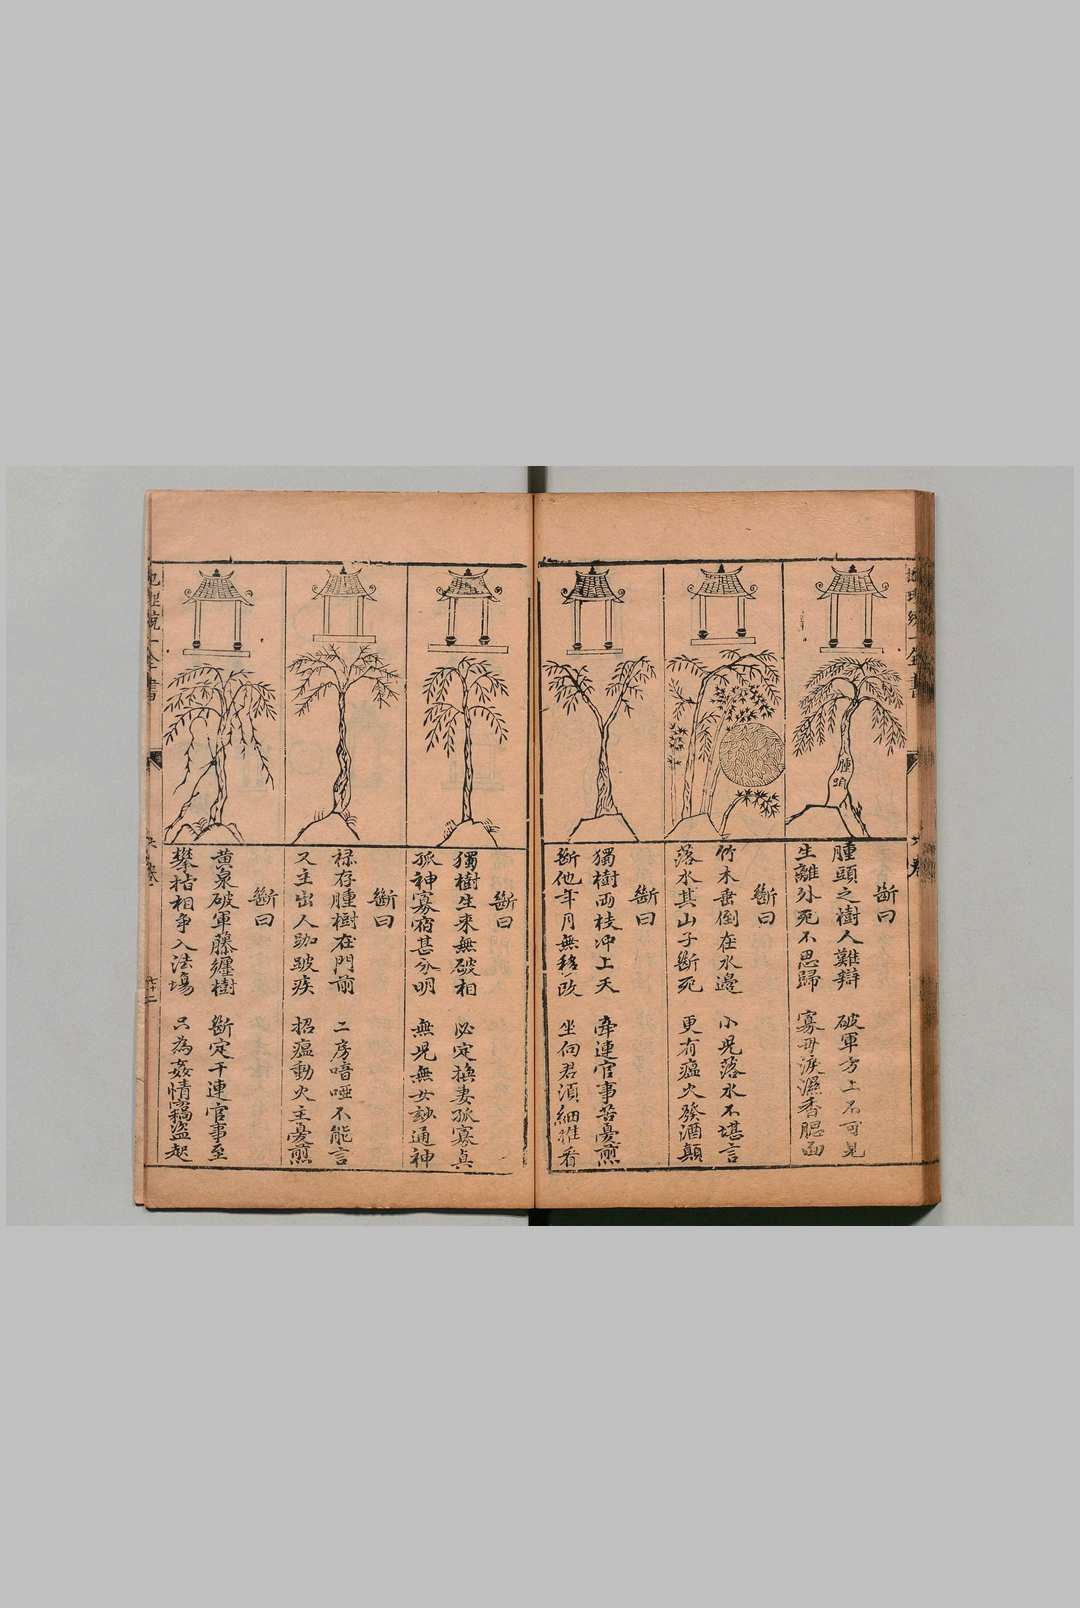 腫頭
斷曰
腫頭之樹人難辯　破軍方上不可見
生離外死不思歸　寡母淚濕香腮面
斷曰
竹木垂倒在水邊　小児落水不堪言
落水其山子斷死　更有瘟火發酒顛
斷曰
獨樹兩枝冲上天　牽連官事苦憂煎
斷他年月無移改　坐向君須細推看
斷曰
獨樹生來無破相　必定換妻孤寡真
孤神寡宿甚分明　無児無女訣通神
斷曰
禄存腫樹在門前　二房喑啞不能言
又主出人跏跛疾　招瘟動火主憂煎
斷曰
黄泉破軍藤纏樹　斷定干連官事至
攀枯相争入法場　只為姦情竊盜起
地理統一全書